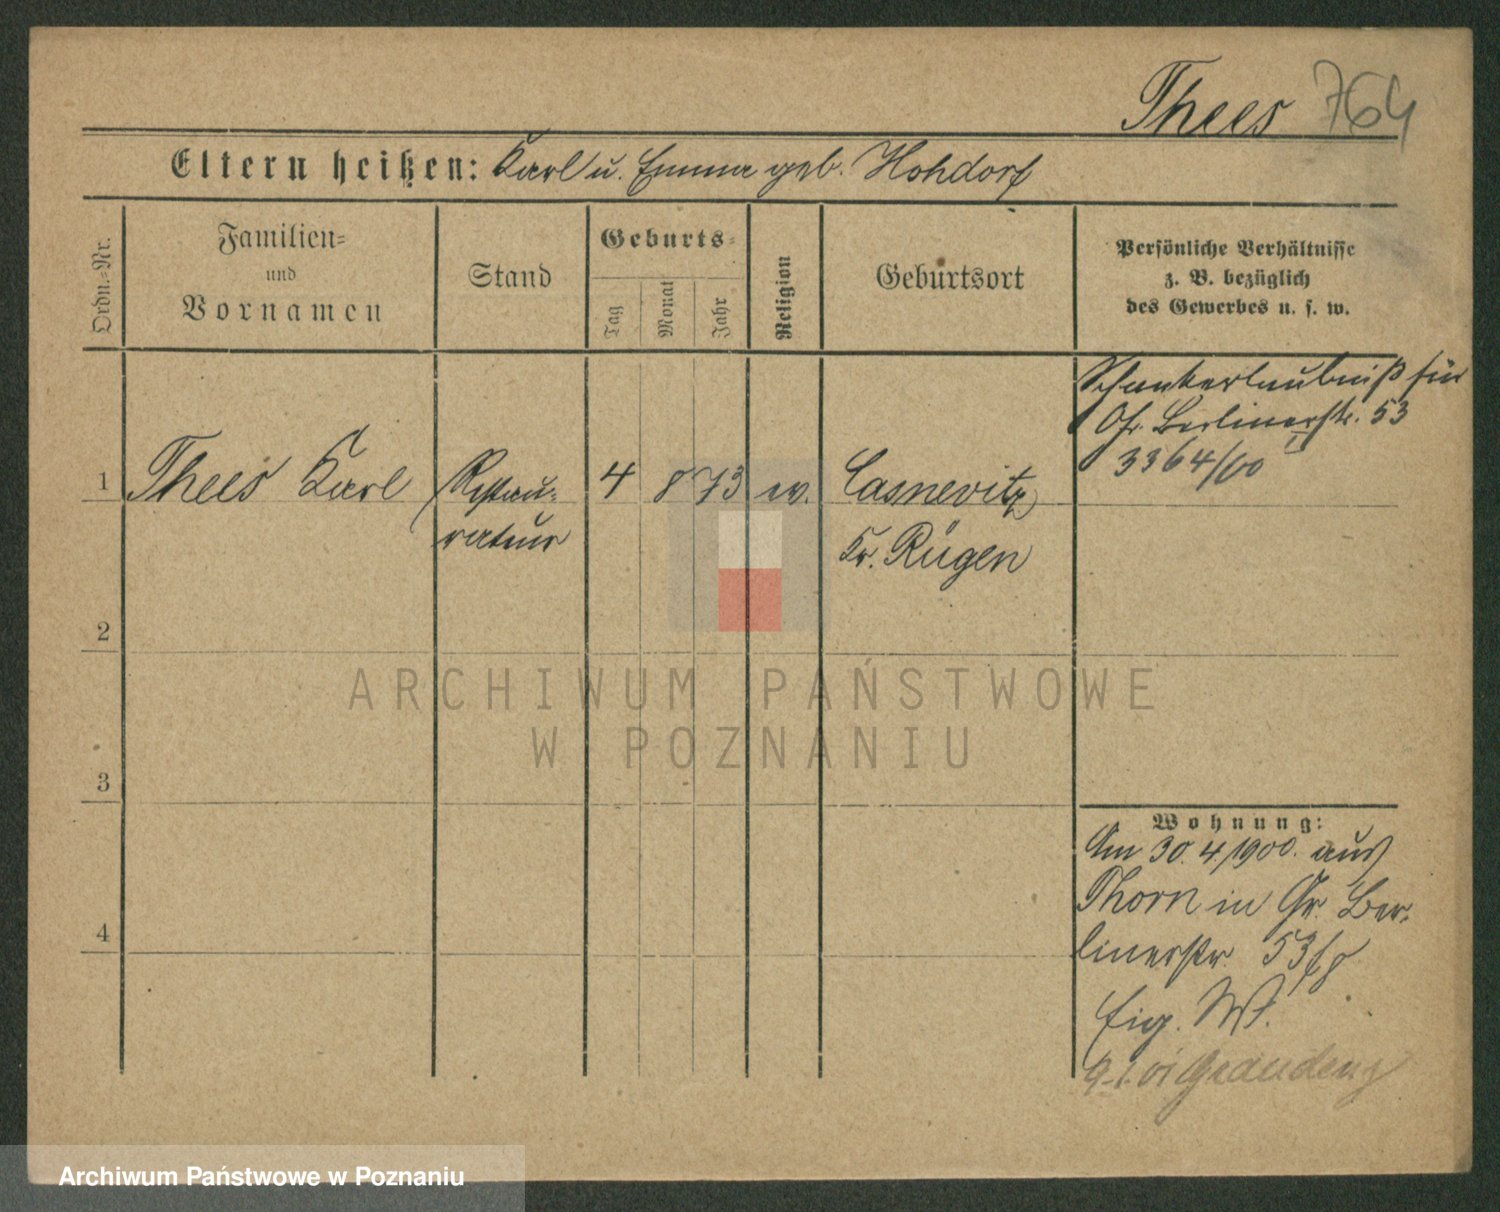 Thees 764
Eltern heißen: Karl u. Emma geb. Hohdorf
Ordn.-Nr.
Familien-
und
Vornamen
Stand
Geburts-
Tag
Monat
Jahr
Religion
Geburtsort
Persönliche Verhältnisse
z. B. bezüglich
des Gewerbes u. s. w.
Schankerlaubniß für
Gr. Berlinerstr. 53
3364/00
1 Thees Karl Restau- 4 8 73 ev. Casnevitz
rateur Kr. Rügen
2
3
4
Wohnung:
Am 30.4.1900. aus
Thorn in Gr. Ber-
linerstr. 53
Eig. W.
9.1.01 Graudenz
ARCHIWUM PAŃSTWOWE
W POZNANIU
Archiwum Państwowe w Poznaniu